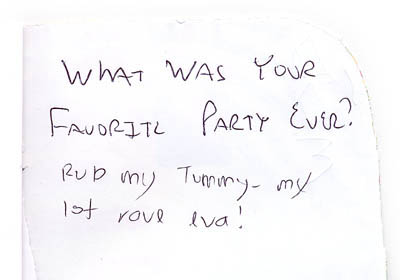 WHAT WAS YOUR
FAVORITE PARTY EVER?
RUB my Tummy - my
1st rave eva!